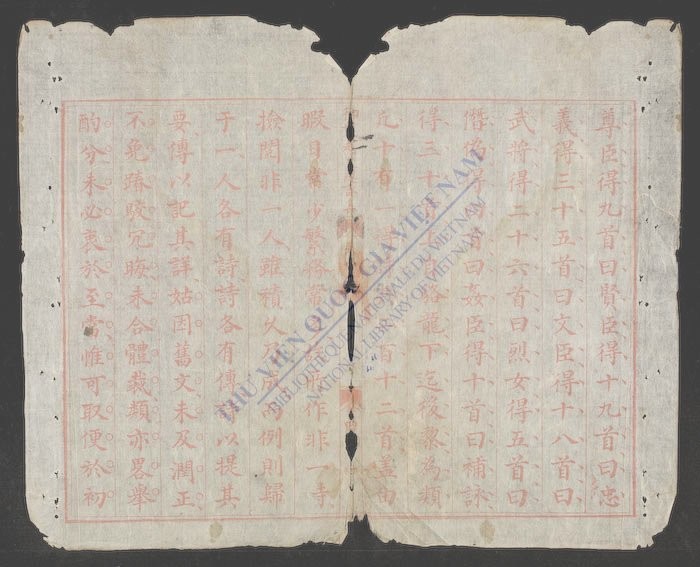 尊臣得九首曰賢臣得十九首曰忠
義得三十五首曰文臣得十八首曰
武将得二十六首曰烈女得五首曰
僭偽得 首曰姦臣得十首曰補詠
得三十 龍下迄後黎為類
凡十有一 百十二首盖由
暇日 少繁 作非一時
撿閱非一人雖積久乃成而例則歸
于一人各有詩詩各有傳 以提其
要傳以記其詳姑因舊文未及潤正
不免踳駁冗晦未合體裁類亦畧舉
酌分未必衷於至當惟可取便於初
THƯ VIỆN QUỐC GIA VIỆT NAM
BIBLIOTHÈQUE NATIONALE DU VIETNAM
NATIONAL LIBRARY OF VIETNAM